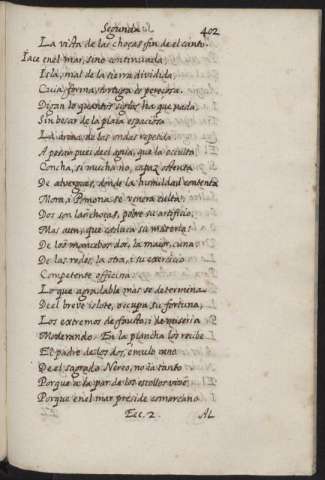 Segunda 402
La vista de las choças fin de el canto.
Iace en el mar, sino continuada
Isla, mal de la tierra diuidida
Cuia forma, tortuga es pereçosa.
Digan lo quantos siglos ha que nada
Sin besar de la plaia espaciosa
La arena, de las ondas repetida
A pesar pues de el agua, que la occulta
Concha, si mucha no, capaz ostenta
De aluergues, donde la humildad contenta
Mora, i Pomona se venera culta.
Dos son las choças, pobre su artificio,
Mas aun, que caduca su materia:
De los mancebos dos, la maior, cuna
De las redes, la otra, i su exercicio
Competente officina
Lo que agradable mas se determina
De el breue islote, occupa su fortuna,
Los extremos de fausto, i de miseria
Moderando. En la plancha los recibe
El padre de los dos, emulo cano
De el sagrado Nereo, no ia tanto
Porque a la par de los escollos viue
Porque en el mar preside comarcano
Ecc. 2. AL